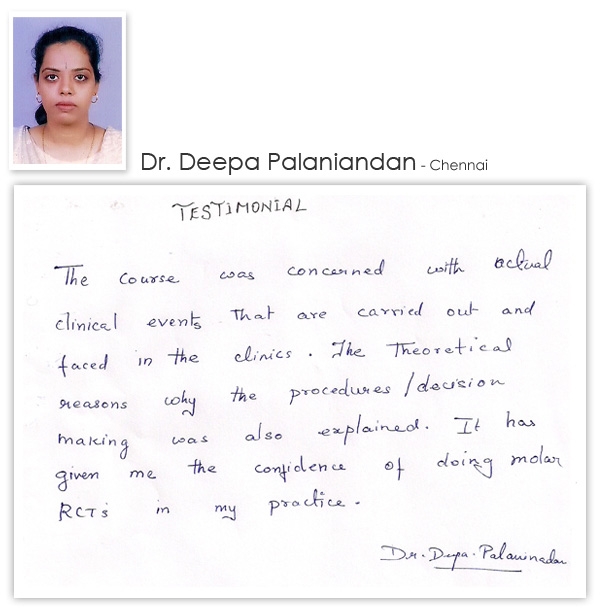 Dr. Deepa Palaniandan - Chennai
TESTIMONIAL
The course was concerned with actual
clinical events that are carried out and
faced in the clinics. The Theoretical
reasons why the procedures/decision
making was also explained. It has
given me the confidence of doing molar
RCTs in my practice.
Dr. Deepa. Palaninadan